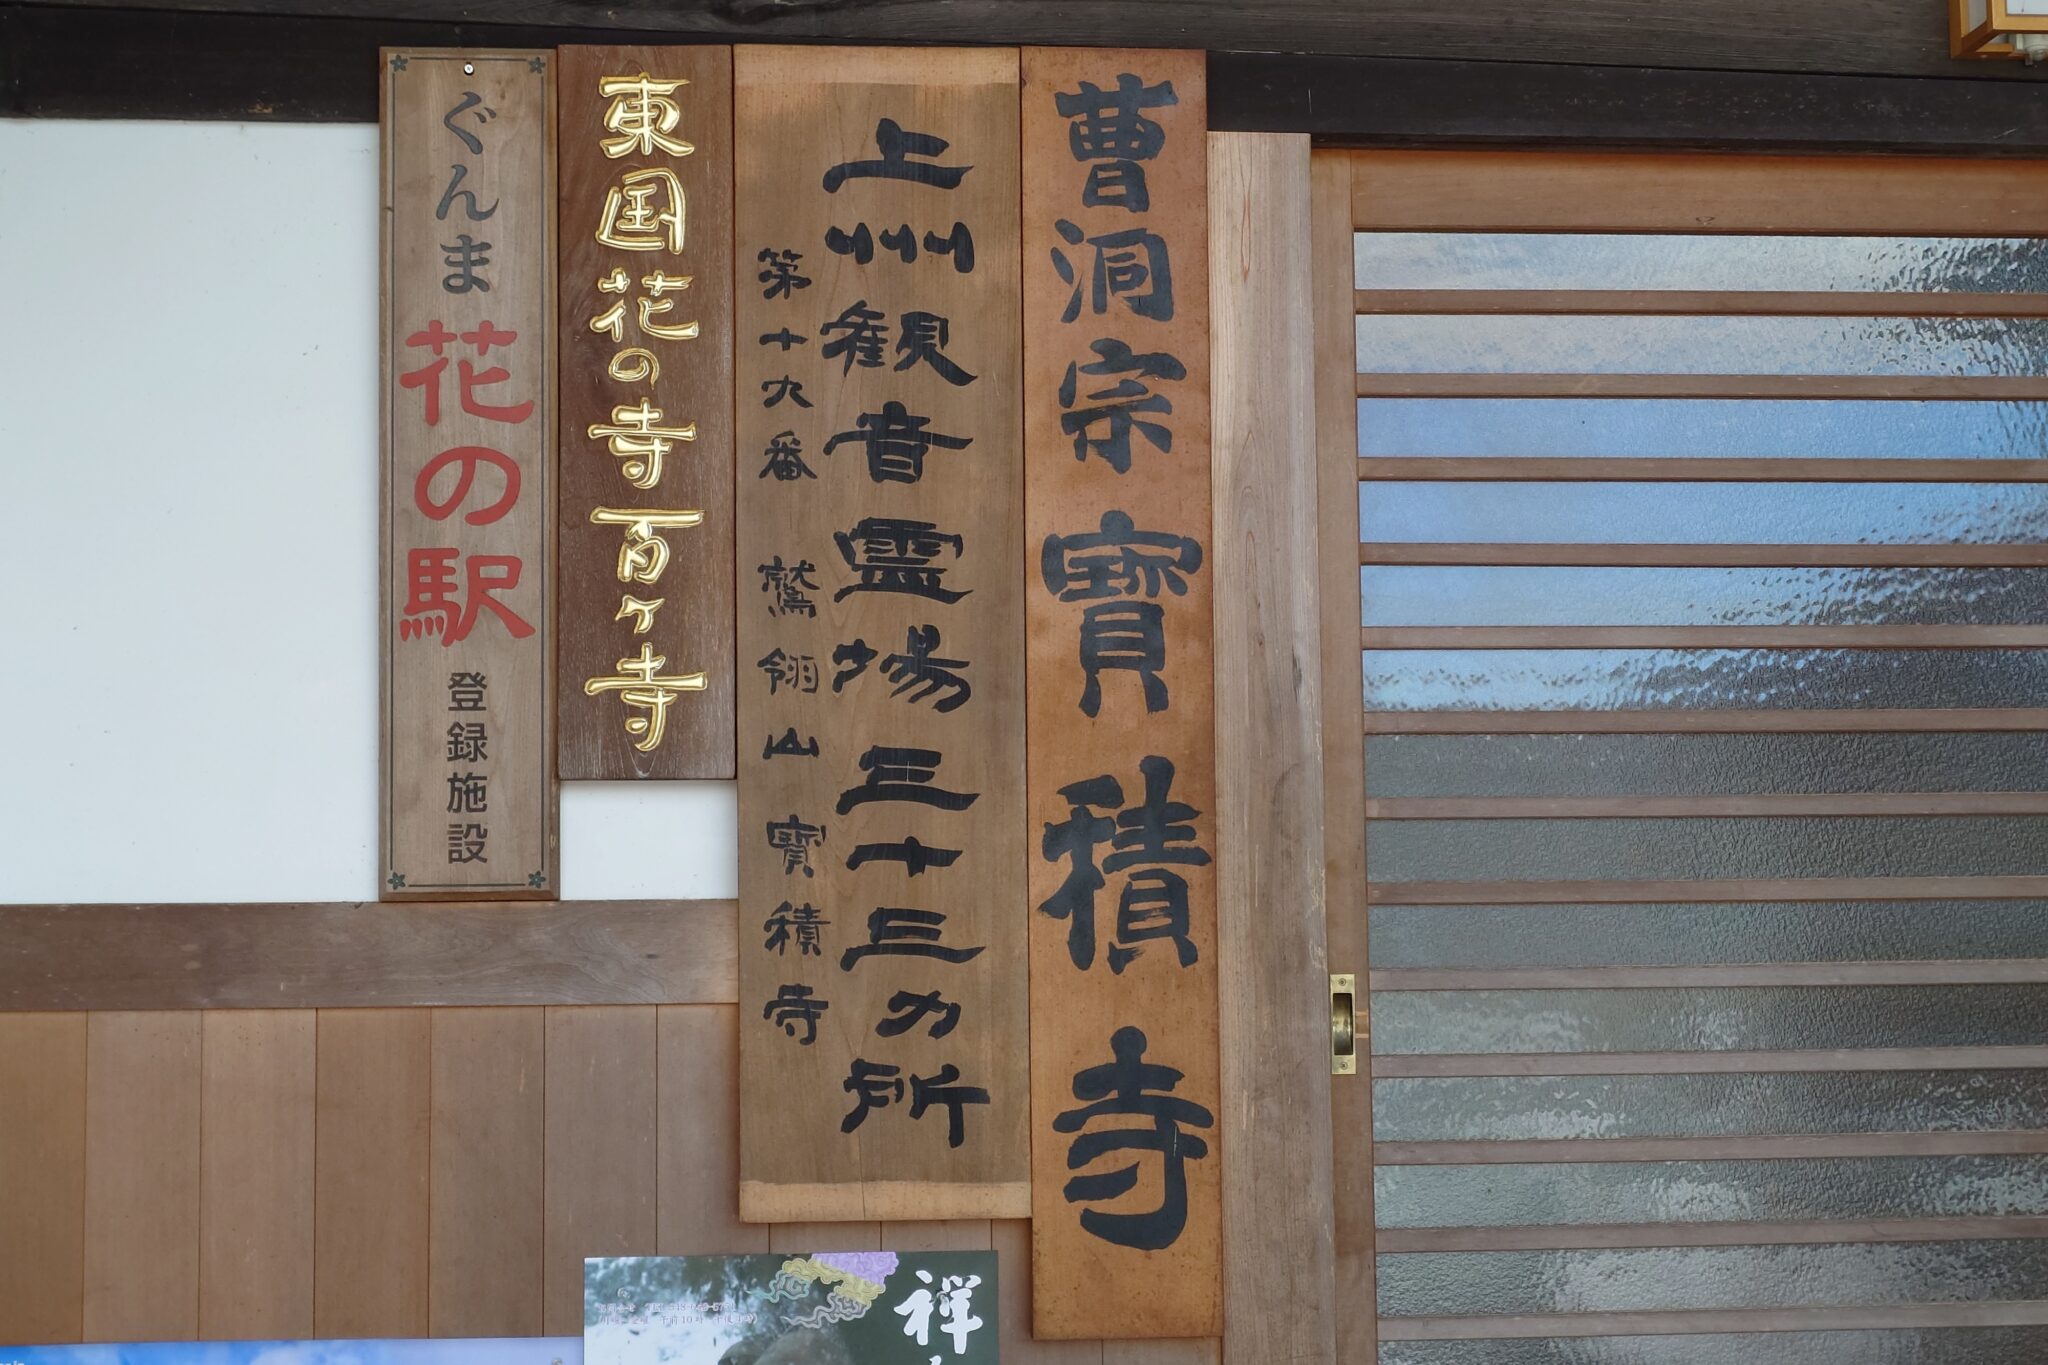 曹洞宗 寶積寺
上州観音霊場三十三カ所
第十九番 鷲翎山 寶積寺
東国花の寺百ヶ寺
ぐんま
花の駅
登録施設
禅